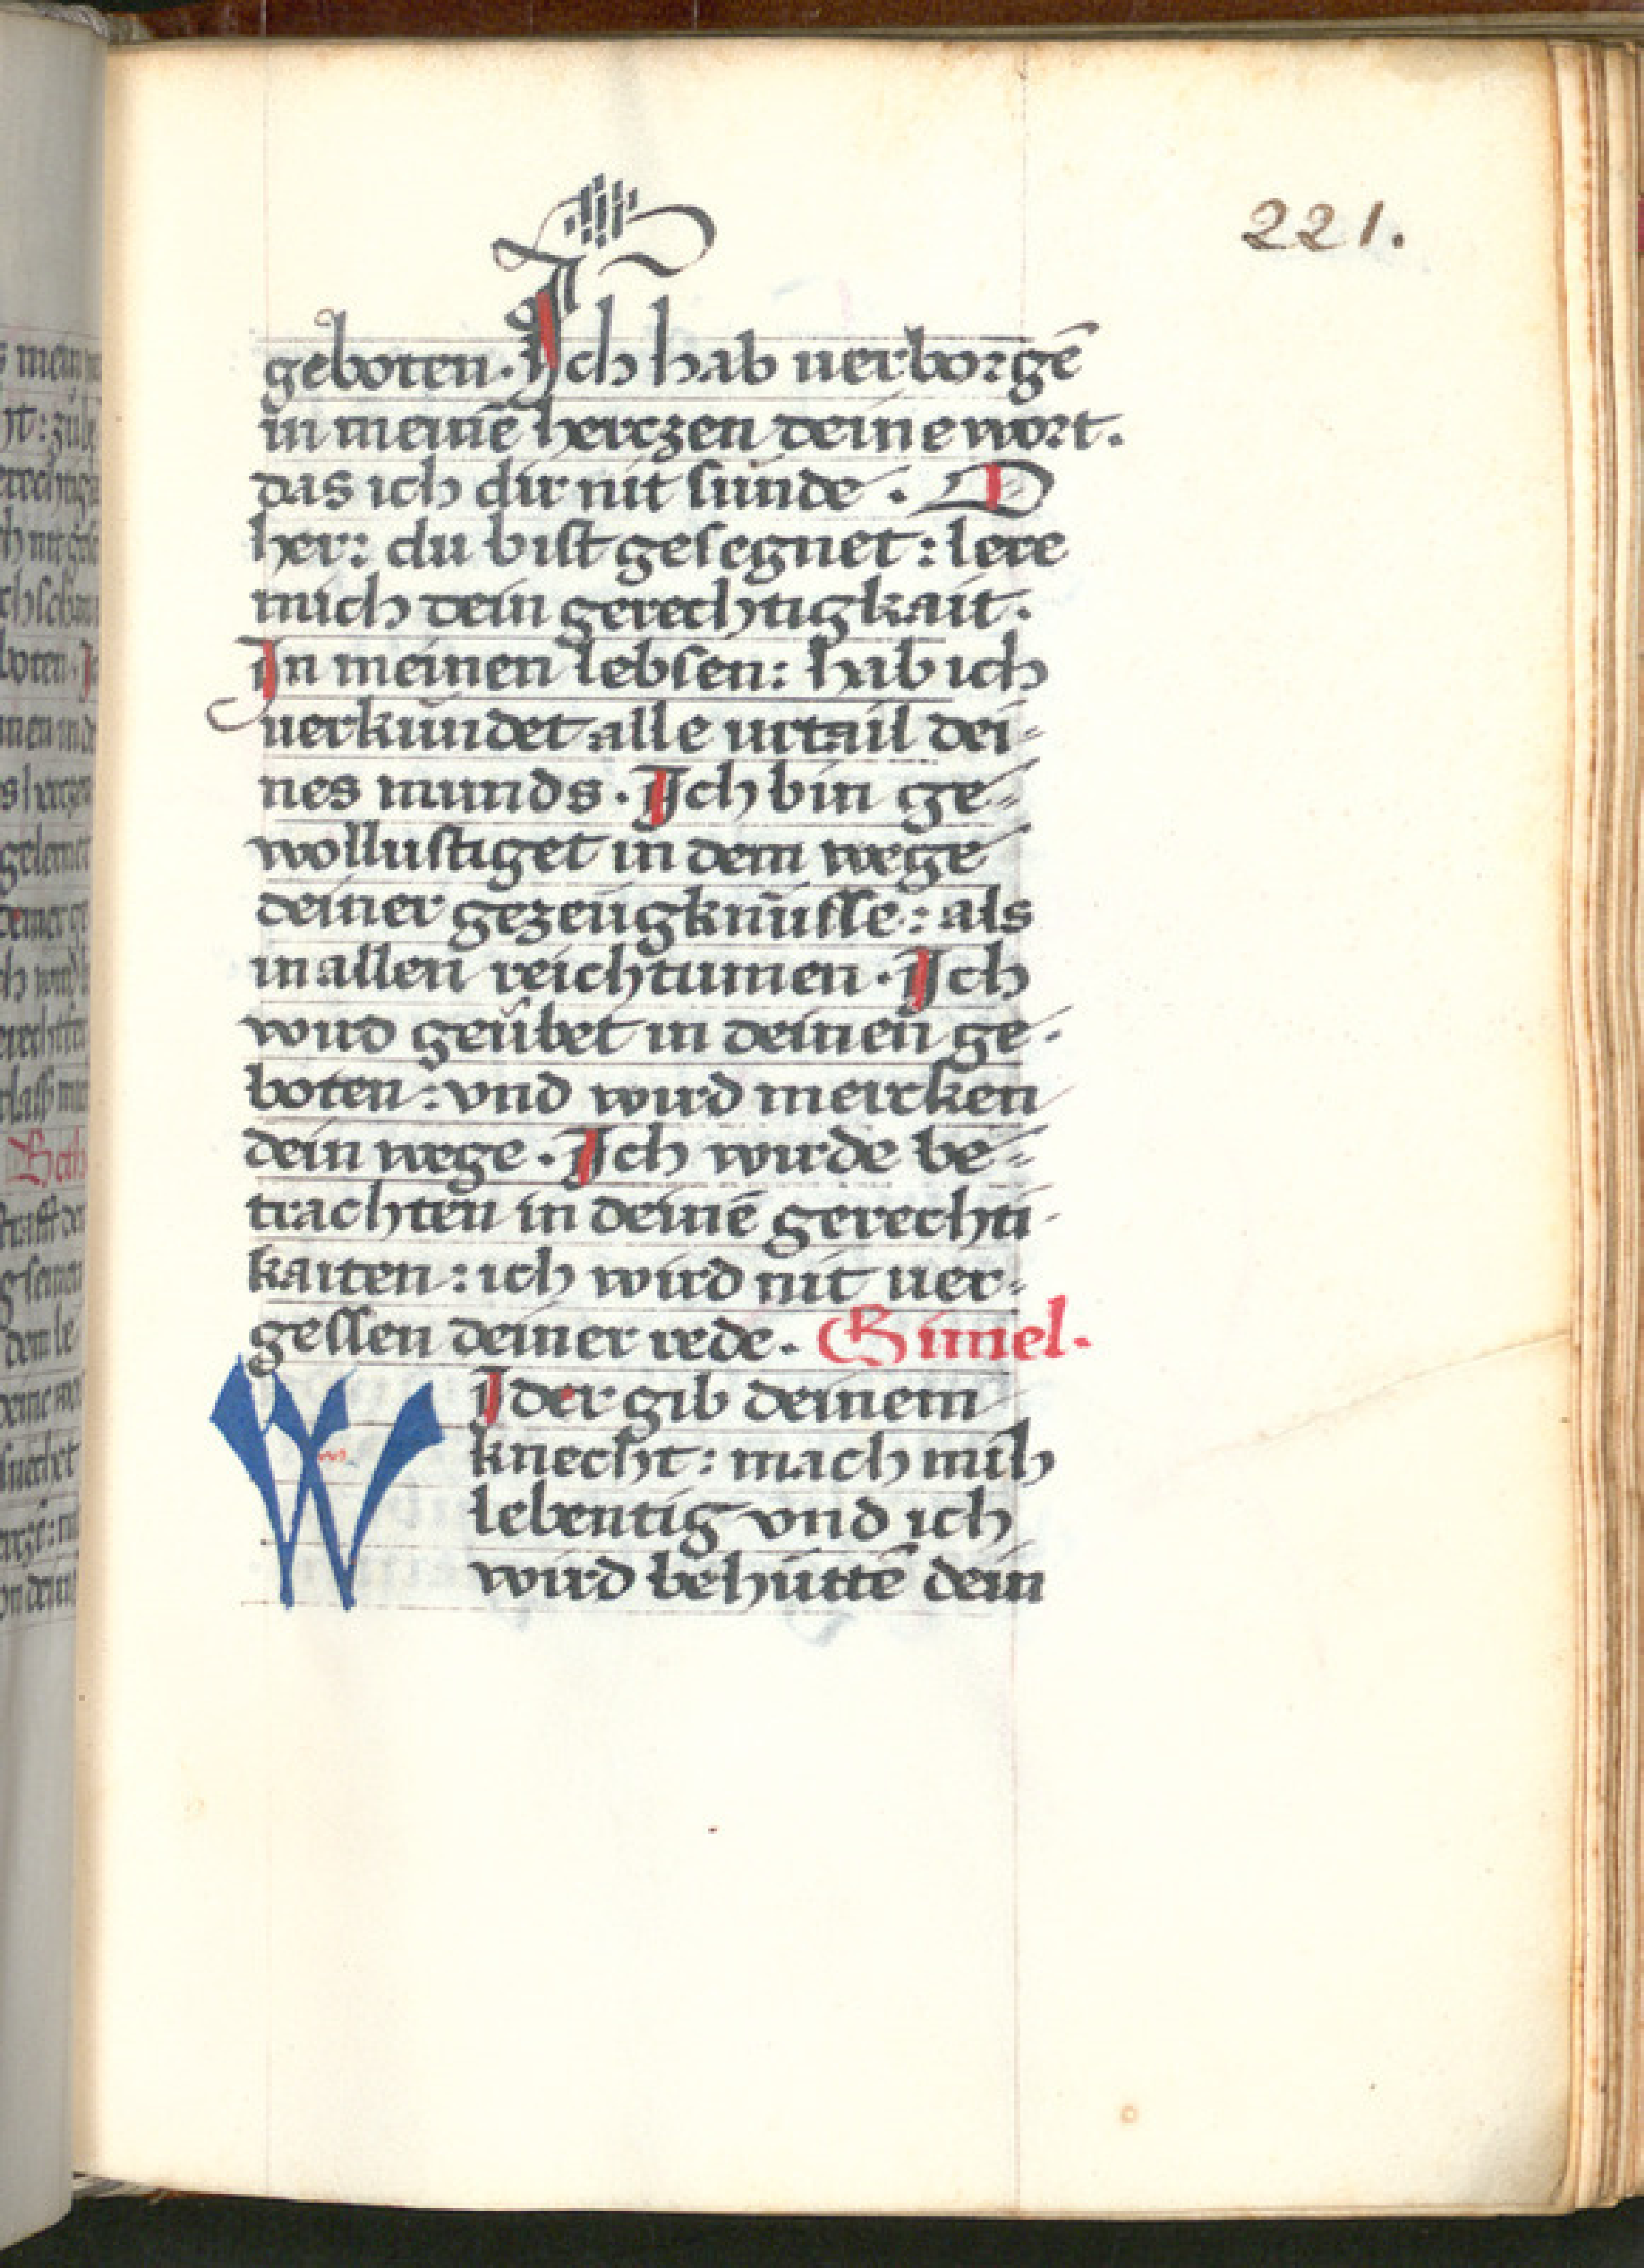 221.
geboten. Ich hab uerborgē
in meinē herczen deine wort.
das ich dir nit sünde. O
her: du bist gesegnet: lere
mich dein gerechtigkait.
In meinen lebsen: hab ich
uerkündet alle urtail dei-
nes munds. Ich bin ge-
wollustiget in dem wege
deiner gezeügknüsse: als
in allen reichtumen. Ich
wird geübet in deinen ge-
boten: vnd wird mercken
dein wege. Ich wirde be-
trachten in deinē gerechti-
kaiten: ich wird nit uer-
gessen deiner rede. Gimel.
WIder gib deinem
knecht: mach mih
lebentig vnd ich
wird behüttē dein